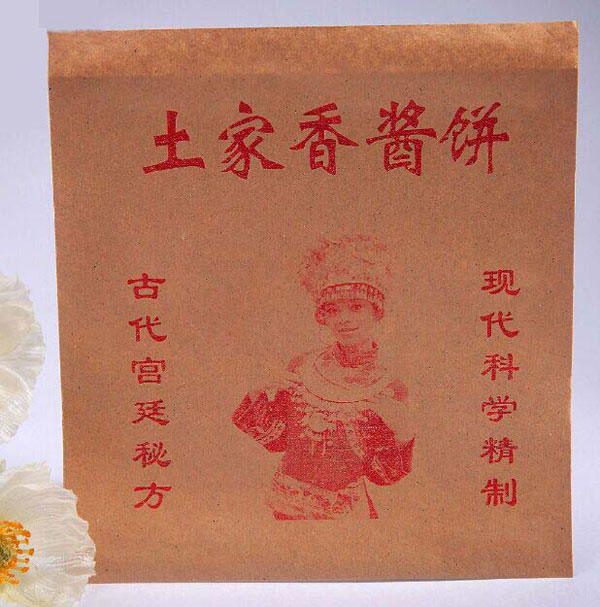 土家香酱饼
古代宫廷秘方
现代科学精制